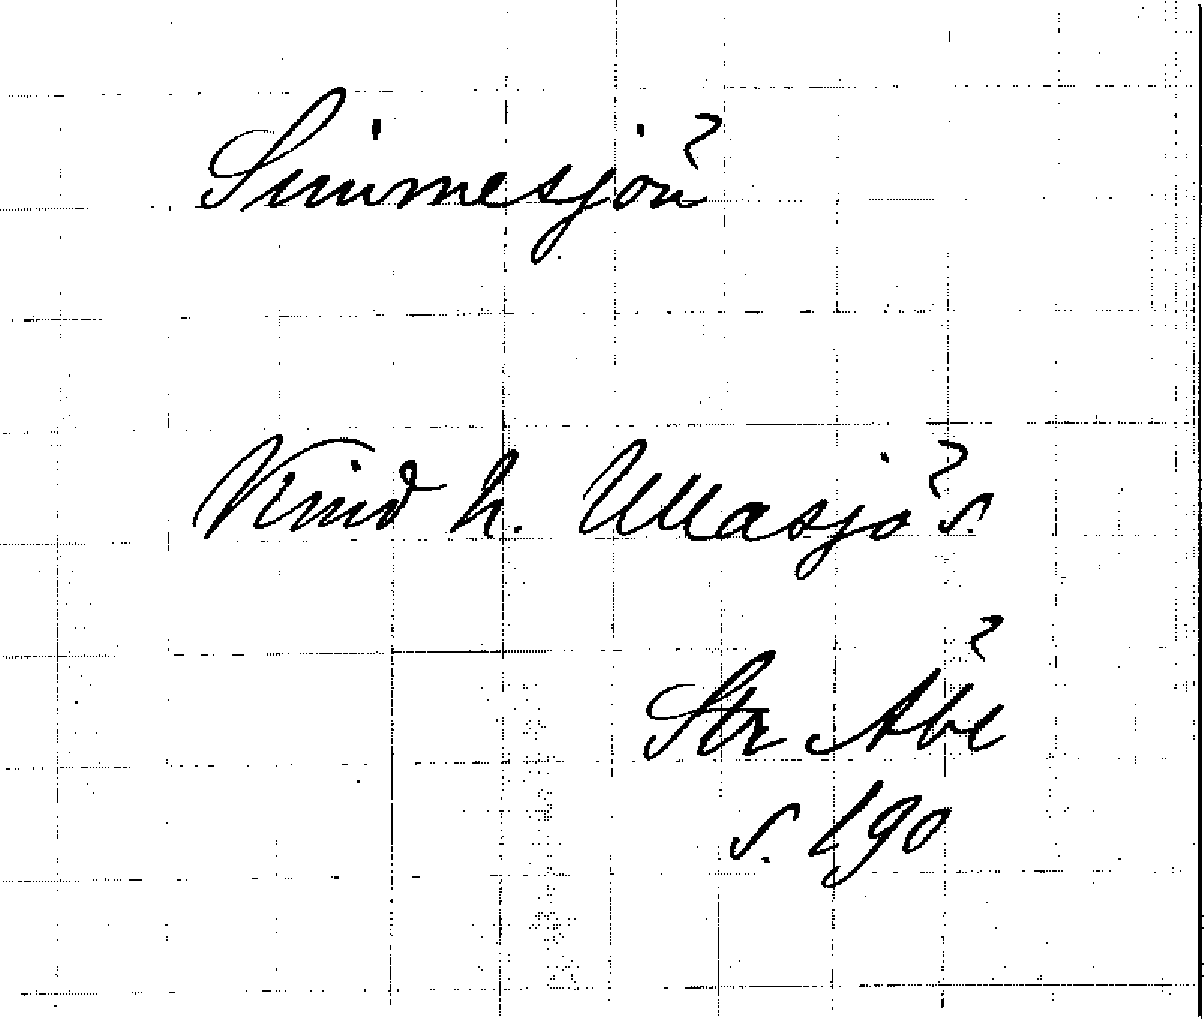 Simmesjön
Kind h. Ullasjö s.
Str Äbe
s. 190